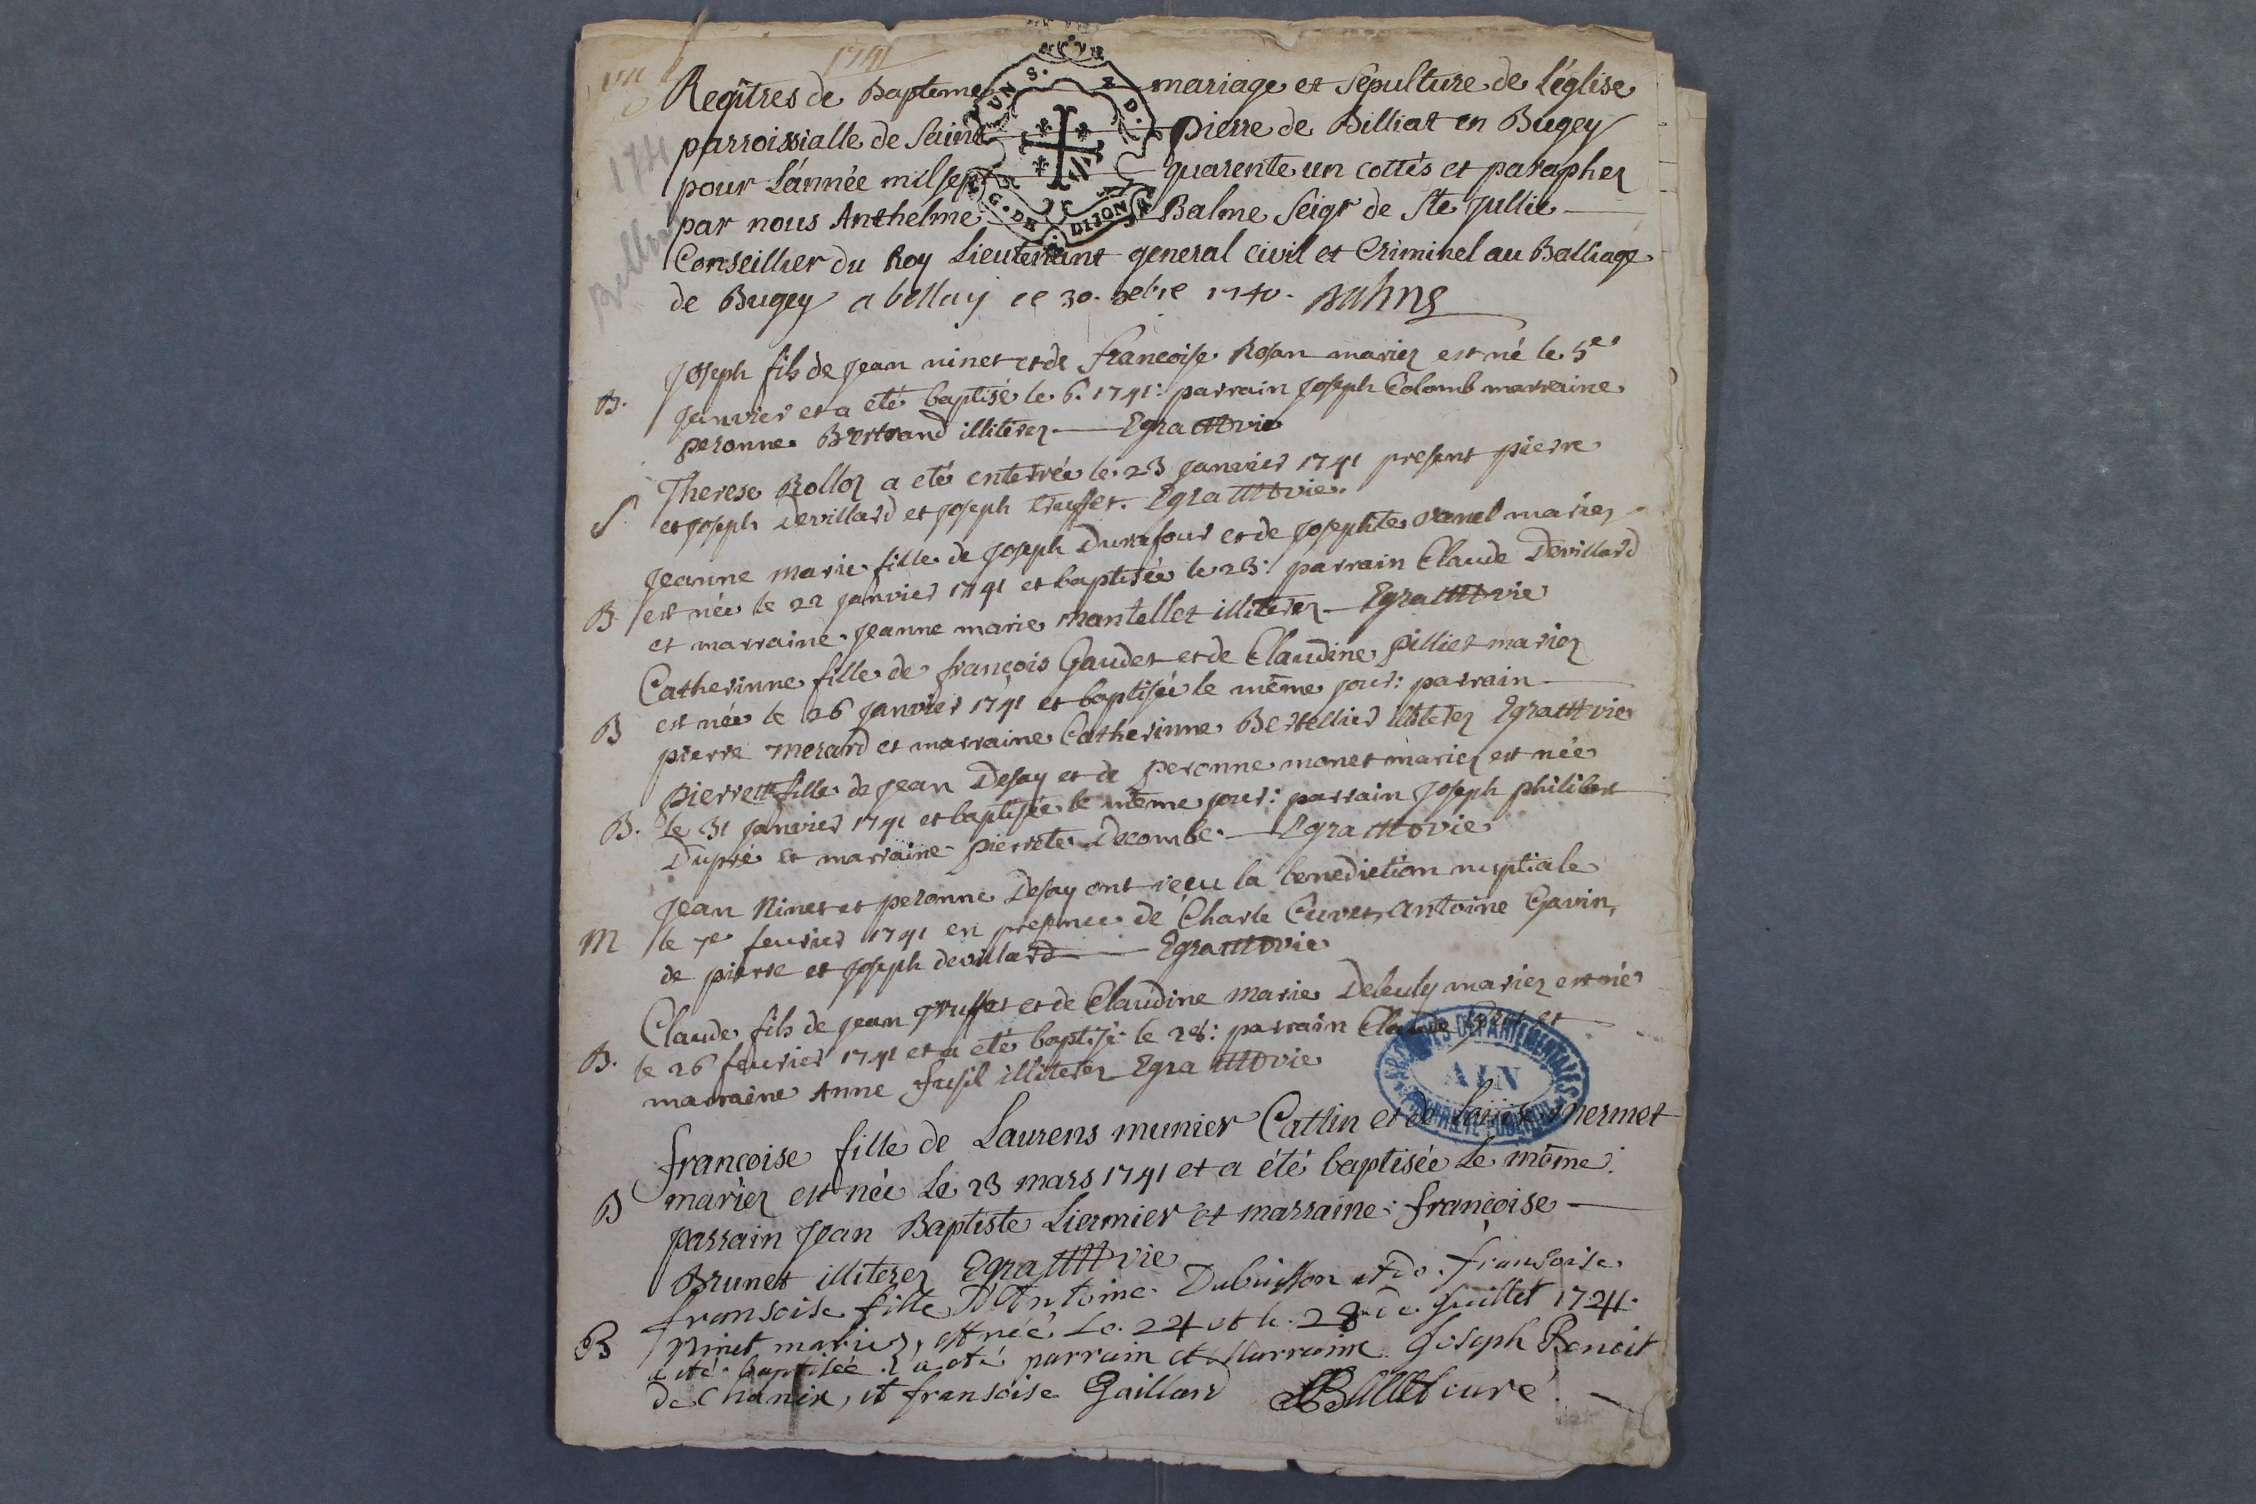 1741
1741
Billiat
Regîtres de Bapteme mariage et Sepulture de L'église
parroissialle de Saint pierre de Billiat en Bugey
pour L'année mil sept quarente un cottés et paraphez
par nous Anthelme Balme Seigr de Ste Jullie
Conseiller du Roy Lieutenant general civil et Criminel au Balliage
de Bugey a bellay ce 30. xbre 1740. Balme
UN S. 4 D.
G. DE DIJON
Joseph fils de Jean ninet et de francoise Rosan mariez est né le 5e
B. Janvier et a eté baptisé le 6. 1741: parrain Joseph Colomb marraine
peronne Bertrand illiterez Egrattovie
Therese Rolloz a eté enterrée le 23 Janvier 1741 present pierre
S et Joseph Devillard et Joseph Truffet. Egrattovie.
Jeanne marie fille de Joseph Durafour et de Josephte vanel mariez
B est née le 22 Janvier 1741 et baptisée le 23: parrain Claude Devillard
et marraine Jeanne marie mantellet illiterez Egrattovie
Catherinne fille de françois Gaudet et de Claudine pilliet mariez
B est née le 26 Janvier 1741 et baptisée le même jour: parrain
pierre merard et marraine Catherinne Bertellier illiterez Egrattovie
pierrette fille de Jean Desay et de peronne monet mariez est née
B. le 31 Janvier 1741 et baptisée le même jour: parrain Joseph philibert
Dupré et marraine pierrete Decombe. Egrattovie
Jean Ninet et peronne Desay ont reçu la benediction nuptiale
M le 7e fevrier 1741 en presence de Charle Cuvet, Antoine Gavin,
de pierre et Joseph devillard Egrattovie
Claude fils de Jean truffet et de Claudine marie Deleuly mariez est né
B. le 26 fevrier 1741 et a eté baptisé le 28: parrain Claude et
marraine Anne fusil illiterez Egrattovie
ARCHIVES DEPARTEMENTALES
AIN
PROPRIETE PUBLIQUE
françoise fille de Laurens munier Catlin et de Loüise mermet
B mariez est née Le 23 mars 1741 et a été baptisée Le même:
parrain Jean Baptiste Liermier et marraine: françoise
Brunet illiterez Egrattovie
fransoise fille D'Antoine Dubuisson et de fransoise
B Ninet mariez, est née Le. 24 et le. 28 de Juillet 1741.
a été baptisée. l'a été parrain et Marraine Joseph Benoit
de Chanix, et fransoise Gaillard Billet curé.